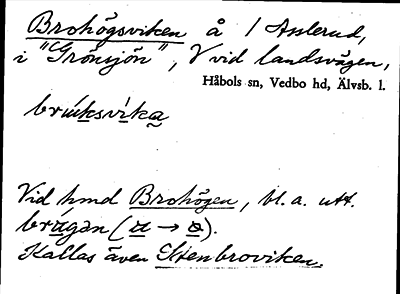 Brohögsviken å 1 Asslerud,
i "Grönsjön", V vid landsvägen,
Håbols sn, Vedbo hd, Älvsb. l.
brúksvìka
Vid hmd Brohögen, bl. a. utt.
brúgən (u → a).
Kallas även Stenbroviken.